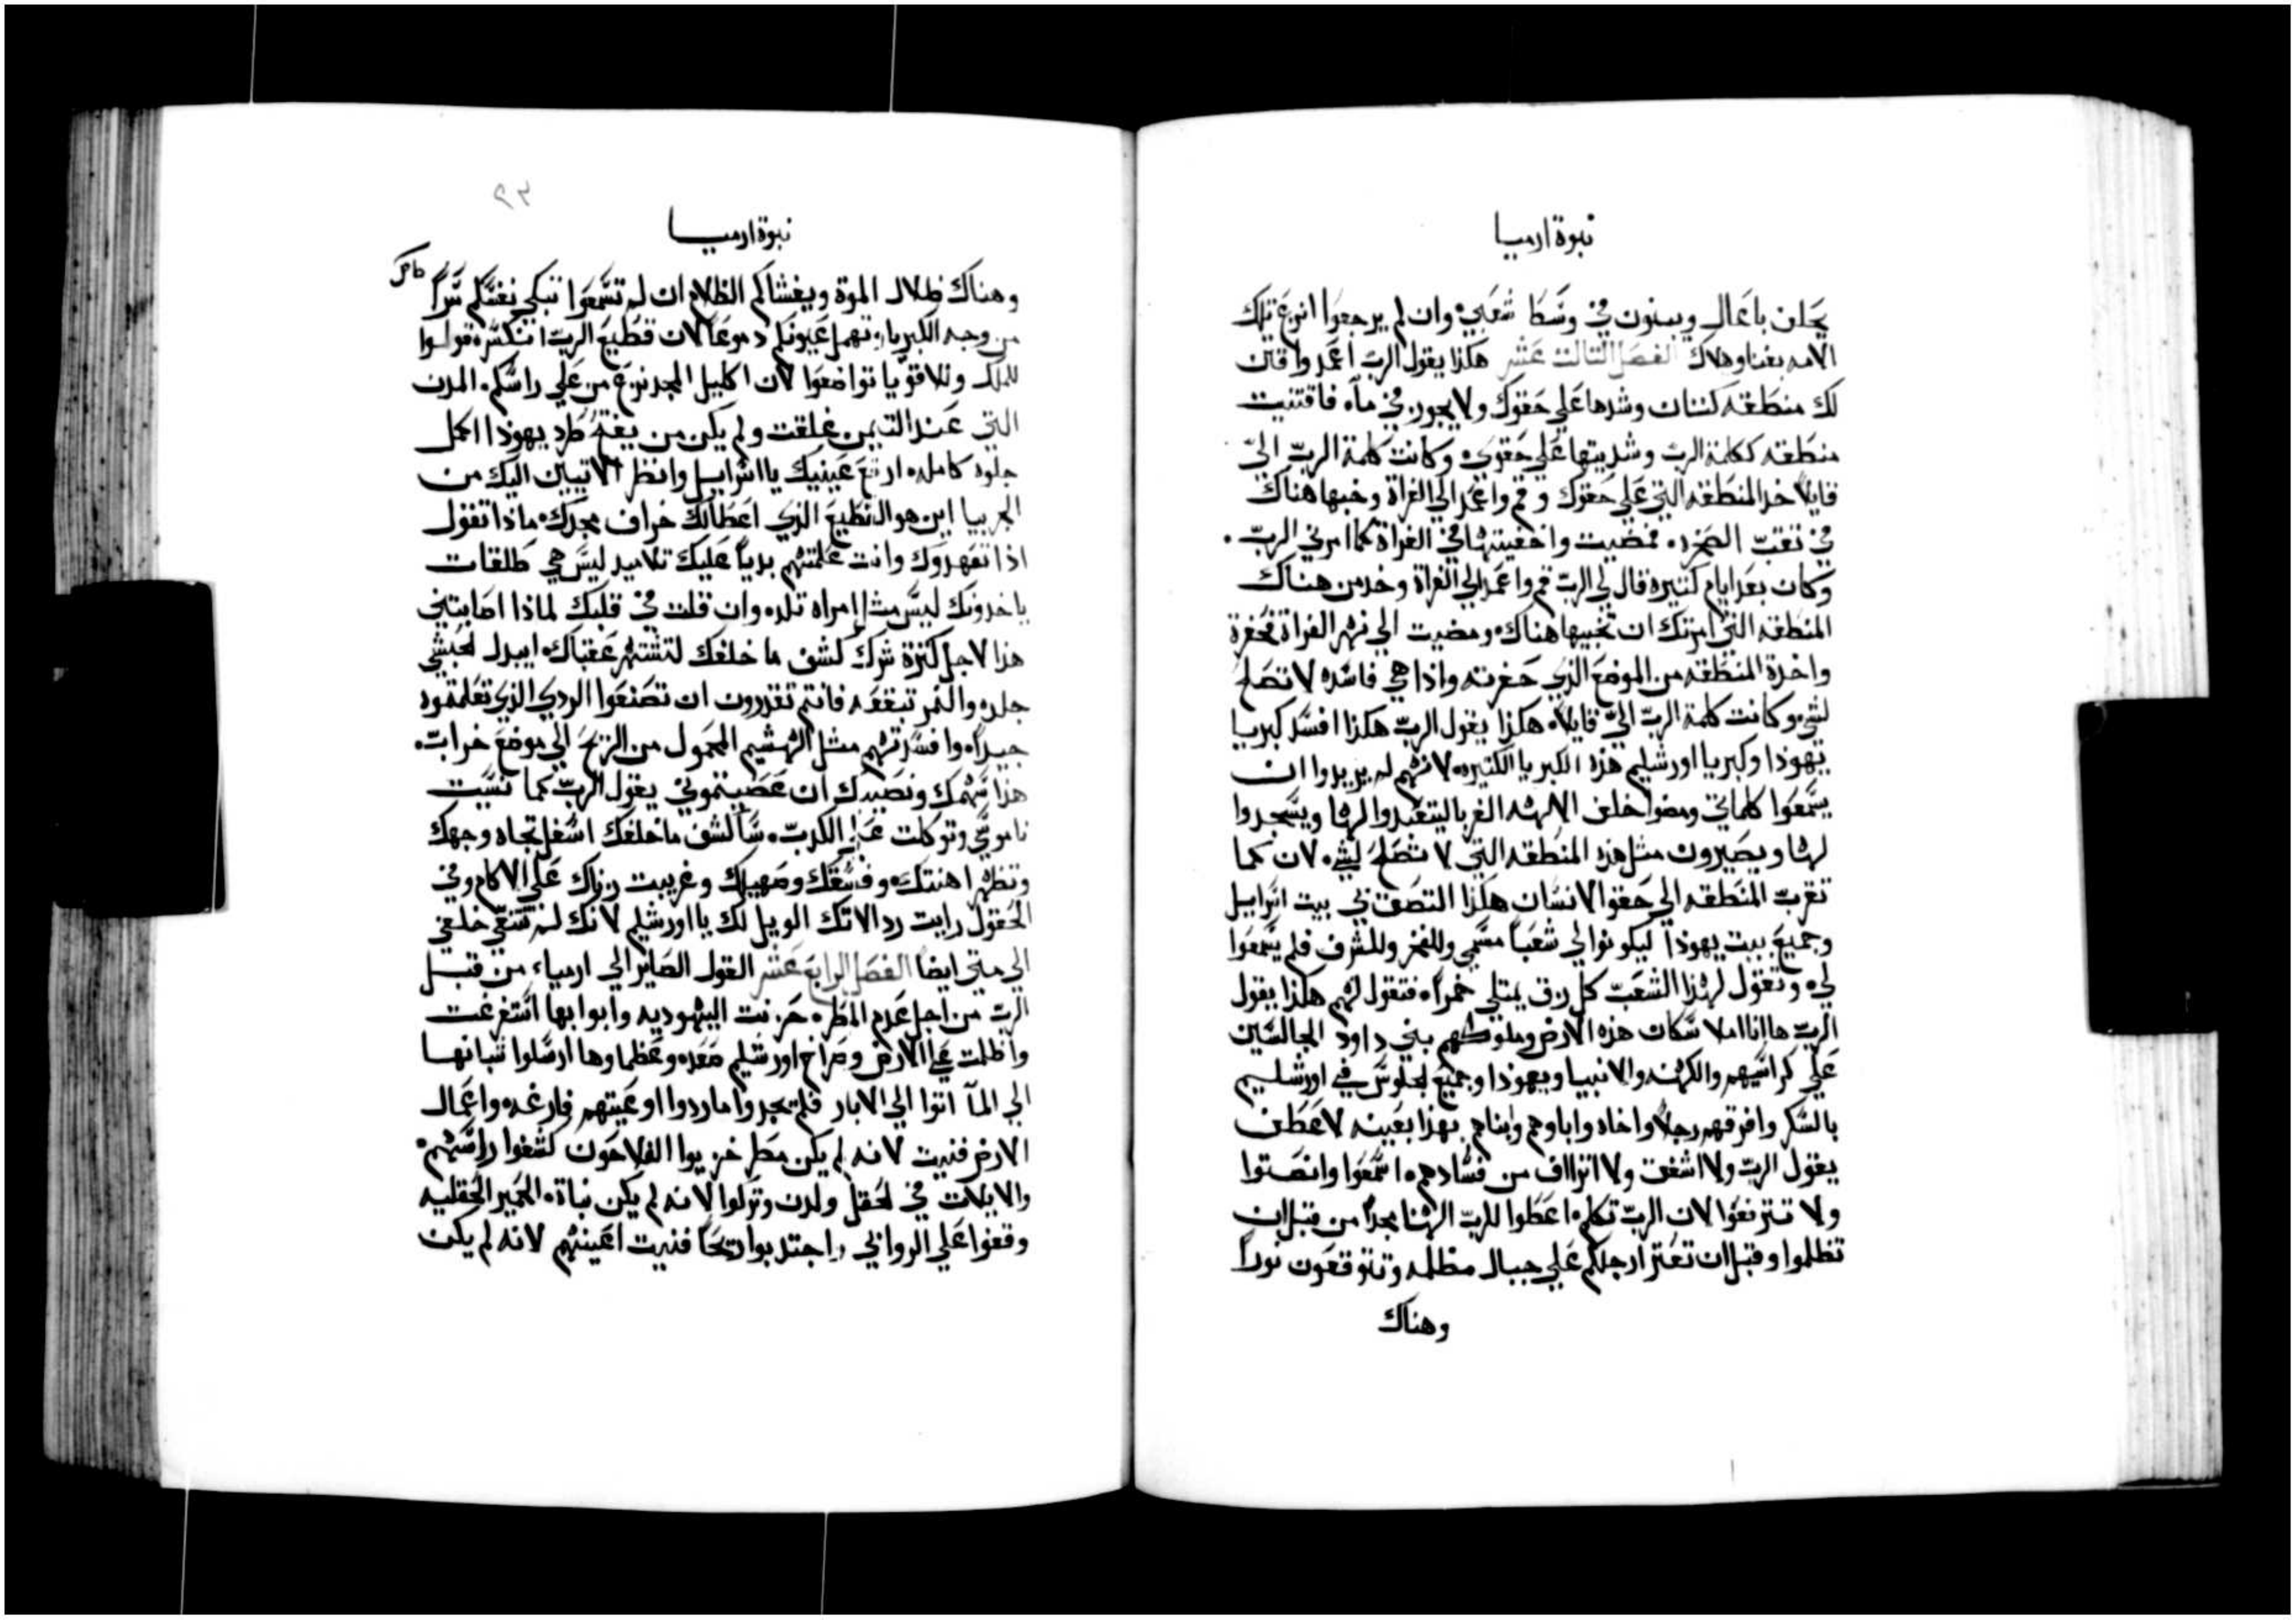 نبوة ارميا
يحلن باعمال ويبنون في وسط شعبي وان لم يرجعوا انزع تلك
الامه بفنا وهلاك الفصل التالت عشر هكذا يقول الرب اعمد واقتن
لك منطقه كتان وشدها على حقوك ولا يجوز في ماء فاقتنيت
منطقه ككلمة الرب وشديتها علي حقوي وكانت كلمة الرب اليّ
قايلاً خد المنطقه التي علي حقوك وقم واعمد الي الفراة وخبها هناك
في نقب الصخره فمضيت واخفيتها في الفراة كما امرني الرب
وكان بعد ايام كتيره قال لي الرب قم واعمد الي الفراة وخد من هناك
المنطقه التي امرتك ان تخبيها هناك ومضيت الي نهر الفراة فحفرة
واخدة المنطقه من الموضع الذي حفرته واذا هي فاسده لا تصلح
لشي وكانت كلمة الرب اليّ قايلاً هكذا يقول الرب هكذا افسد كبريا
يهوذا وكبريا اورشليم هذه الكبريا الكتيره لانهم لم يريدوا ان
يسمعوا كلماتي ومضوا خلف الالهه الغربا ليتعبدوا لها ويسجدوا
لها ويصيرون متل هذه المنطقه التي لا تصلح لشي لان كما
تقرب المنطقه الي حقوا الانسان هكذا التصق بي بيت اسراييل
وجميع بيت يهوذا ليكونوا لي شعباً مسمي وللفخر وللشرف فلم يسمعوا
لي وتقول لهذا الشعب كل زق يمتلي خمراً فتقول لهم هكذا يقول
الرب هاانا املا سكان هذه الارض وملوكهم بني داود الجالسين
علي كراسيهم والكهنه والانبيا ويهوذا وجميع الجلوس في اورشليم
بالسكر وافرقهم رجلاً واخاه واباوهم وابناهم بهذا بعينه لا عطف
يقول الرب ولا اشفق ولا اتراف من فسادهم اسمعوا وانصتوا
ولا تترفعوا لان الرب تكلم اعطوا للرب الهنا مجداً من قبل ان
تظلموا وقبل ان تعتر ارجلكم علي جبال مظلمه وتتوقعون نوراً
وهناك
٢٣
نبوة ارميا
وهناك ظلال الموة ويغشاكم الظلام ان لم تسمعوا تبكي نفسكم سراً
من وجه الكبريا تهمل عيونكم دموعاً لان قطيع الرب انكسر قولوا
للملك وللاقويا تواضعوا لان اكليل المجد نزع من علي راسكم المدن
التي عند التيمن غلقت ولم يكن من يفتح طرد يهوذا اكمل
جلوه كامله ارفع عينيك يا اسراييل وانظر الاتيين اليك من
الجربيا اين هو القطيع الذي اعطالك خراف مجدك ماذا تقول
اذا تفهدوك وانت علمتهم بدياً عليك تلاميد ليس هي طلقات
ياخدونك ليس متل امراه تلد وان قلت في قلبك لماذا اصابتني
هذا لاجل كترة شرك كشف ما خلفك لتشتهر عقباك ايبدل الحبشي
جلده والنمر تبقعه فانتم تقدرون ان تصنعوا الردي الذي تعلمتموه
جيداً وافسدتهم متل الهشيم المحمول من الريح الي موضع خراب
هذا سهمك ونصيبك ان عصيتموني يقول الرب كما نسيت
ناموسي وتوكلت علي الكدب ساكشف ما خلفك اسفل تجاه وجهك
وتظهر اهنتك وفسقك وصهيلك وغريبت زناك علي الاكام وفي
الحقول رايت ردالاتك الويل لك يا اورشليم لانك لم تتنقي خلفي
الي متي ايضا الفصل الرابع عشر القول الصاير الي ارمياء من قبل
الرب من اجل عدم المطر حزنت اليهوديه وابوابها استفرغت
واظلمت علي الارض وصراخ اورشليم صعد وعظماوها ارسلوا شبانها
الي الما اتوا الي الابار فلم يجدوا ما ردوا اوعيتهم فارغه واعمال
الارض فنيت لانه لم يكن مطر خزيوا الفلاحون كشفوا راسهم
والايلات في الحقل ولدن وتركوا لانه لم يكن نباة الحمير الحقليه
وقفوا علي الروابي واجتدبوا ريحاً فنيت اعينهم لانه لم يكن